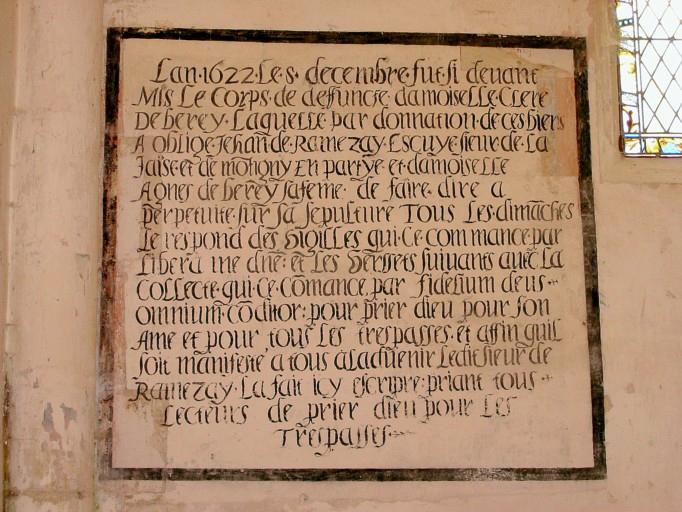 Lan·1622·Le·8· decembre·fut·si devant
Mis Le Corps·de deffuncte· damoiselle·Clere
De berey·Laquelle·par donnation·de ces biens
A oblige·Jehan de·Ramezay·Escuye·sieur·de·La
Jaise·et de motigny En partye·et·damoiselle
Agnes de berey safeme· de faire· dire a
perpetuite·sur sa sepulture Tous Les·dimaches
Le respond des vigilles qui·Ce·commance·par
Libera me dne·et Les versets suivants avec La
Collecte·qui·Ce·Comance·par fidelium deus·
omnium·Coditor:pour prier dieu pour son
Ame et pour tous Les trespasses·et affin quil
soit manifeste a tous aLadvenir Ledit sieur de
Ramezay·La fait icy escripre:priant tous·
Lecteurs de prier dieu pour Les
Trespasses·